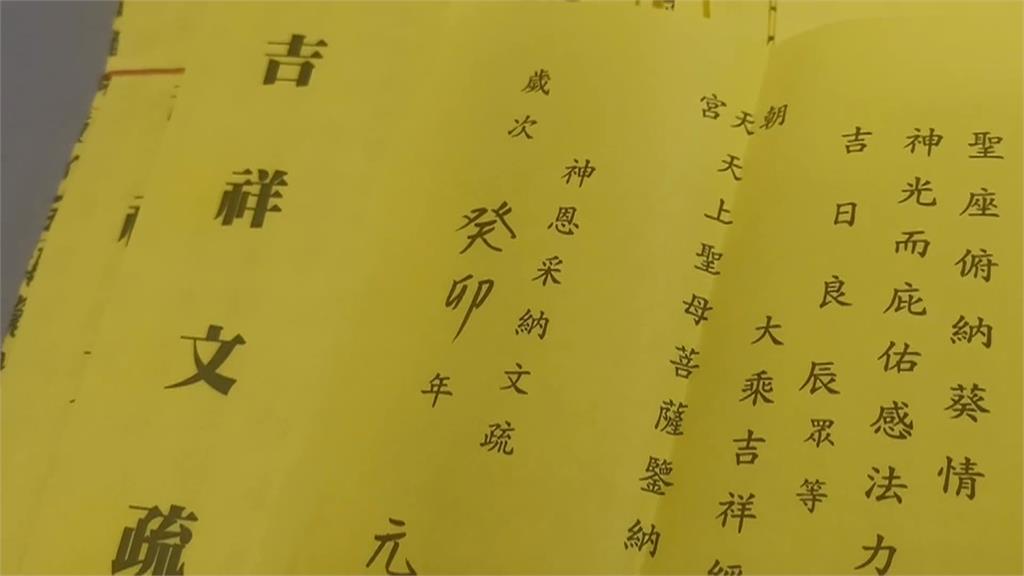 聖座俯納葵情
神光而庇佑感法力
吉日良辰眾等
大乘吉祥經
朝天宮天上聖母菩薩鑒納
神恩采納文疏
歲次癸卯年元
吉祥文疏